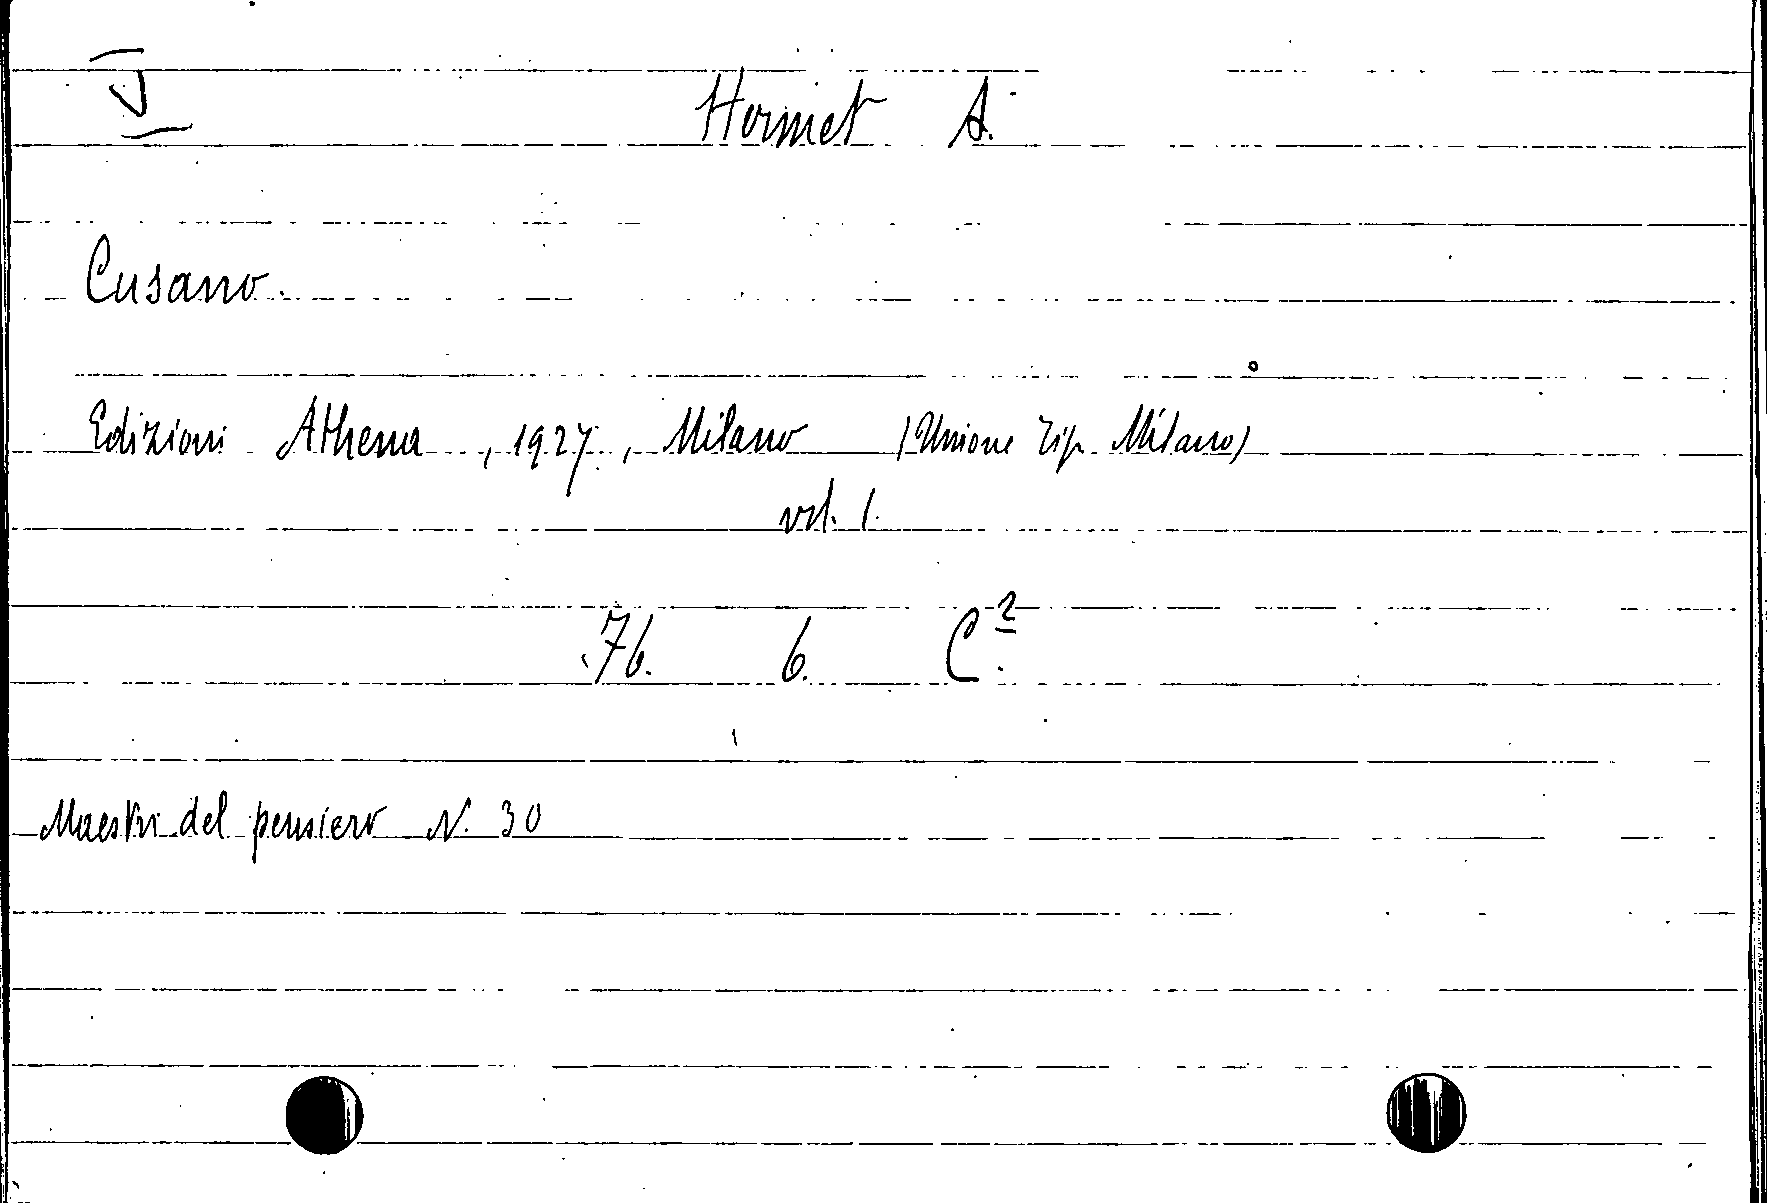 I Hermet A.
Cusano.
Edizioni Athena, 1927, Milano (Unione Tip. Milano)
vol. 1.
76. 6. C².
Maestri del pensiero N. 30